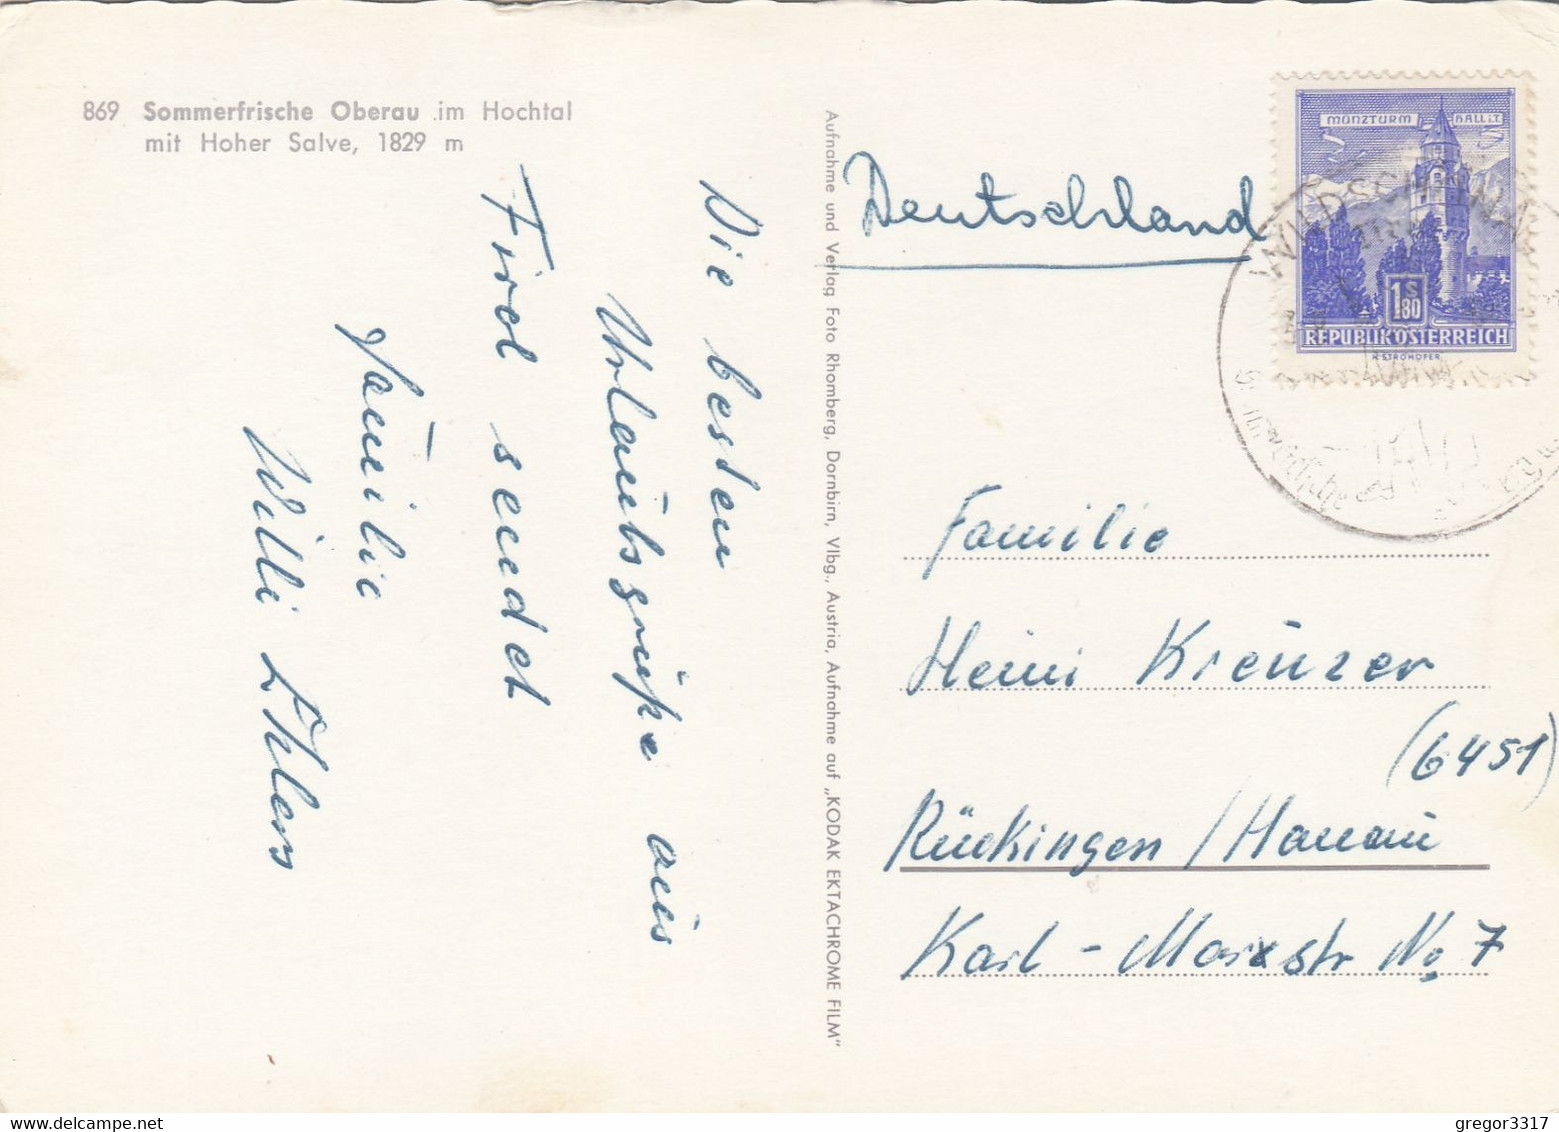 869 Sommerfrische Oberau im Hochtal
mit Hoher Salve, 1829 m
Die besten
Urlaubsgrüße aus
Tirol sendet
Familie
Willi Ehlers
Aufnahme und Verlag Foto Rhomberg, Dornbirn, Vlbg., Austria, Aufnahme auf „KODAK EKTACHROME FILM"
Deutschland
MÜNZTURM HALL i.T.
1 S 80
REPUBLIK ÖSTERREICH
H. STROHOFER
WILDSCHÖNAU
Familie
Heini Kreuzer
(6451)
Rückingen / Hanau
Karl-Marxstr No 7
gregor3317